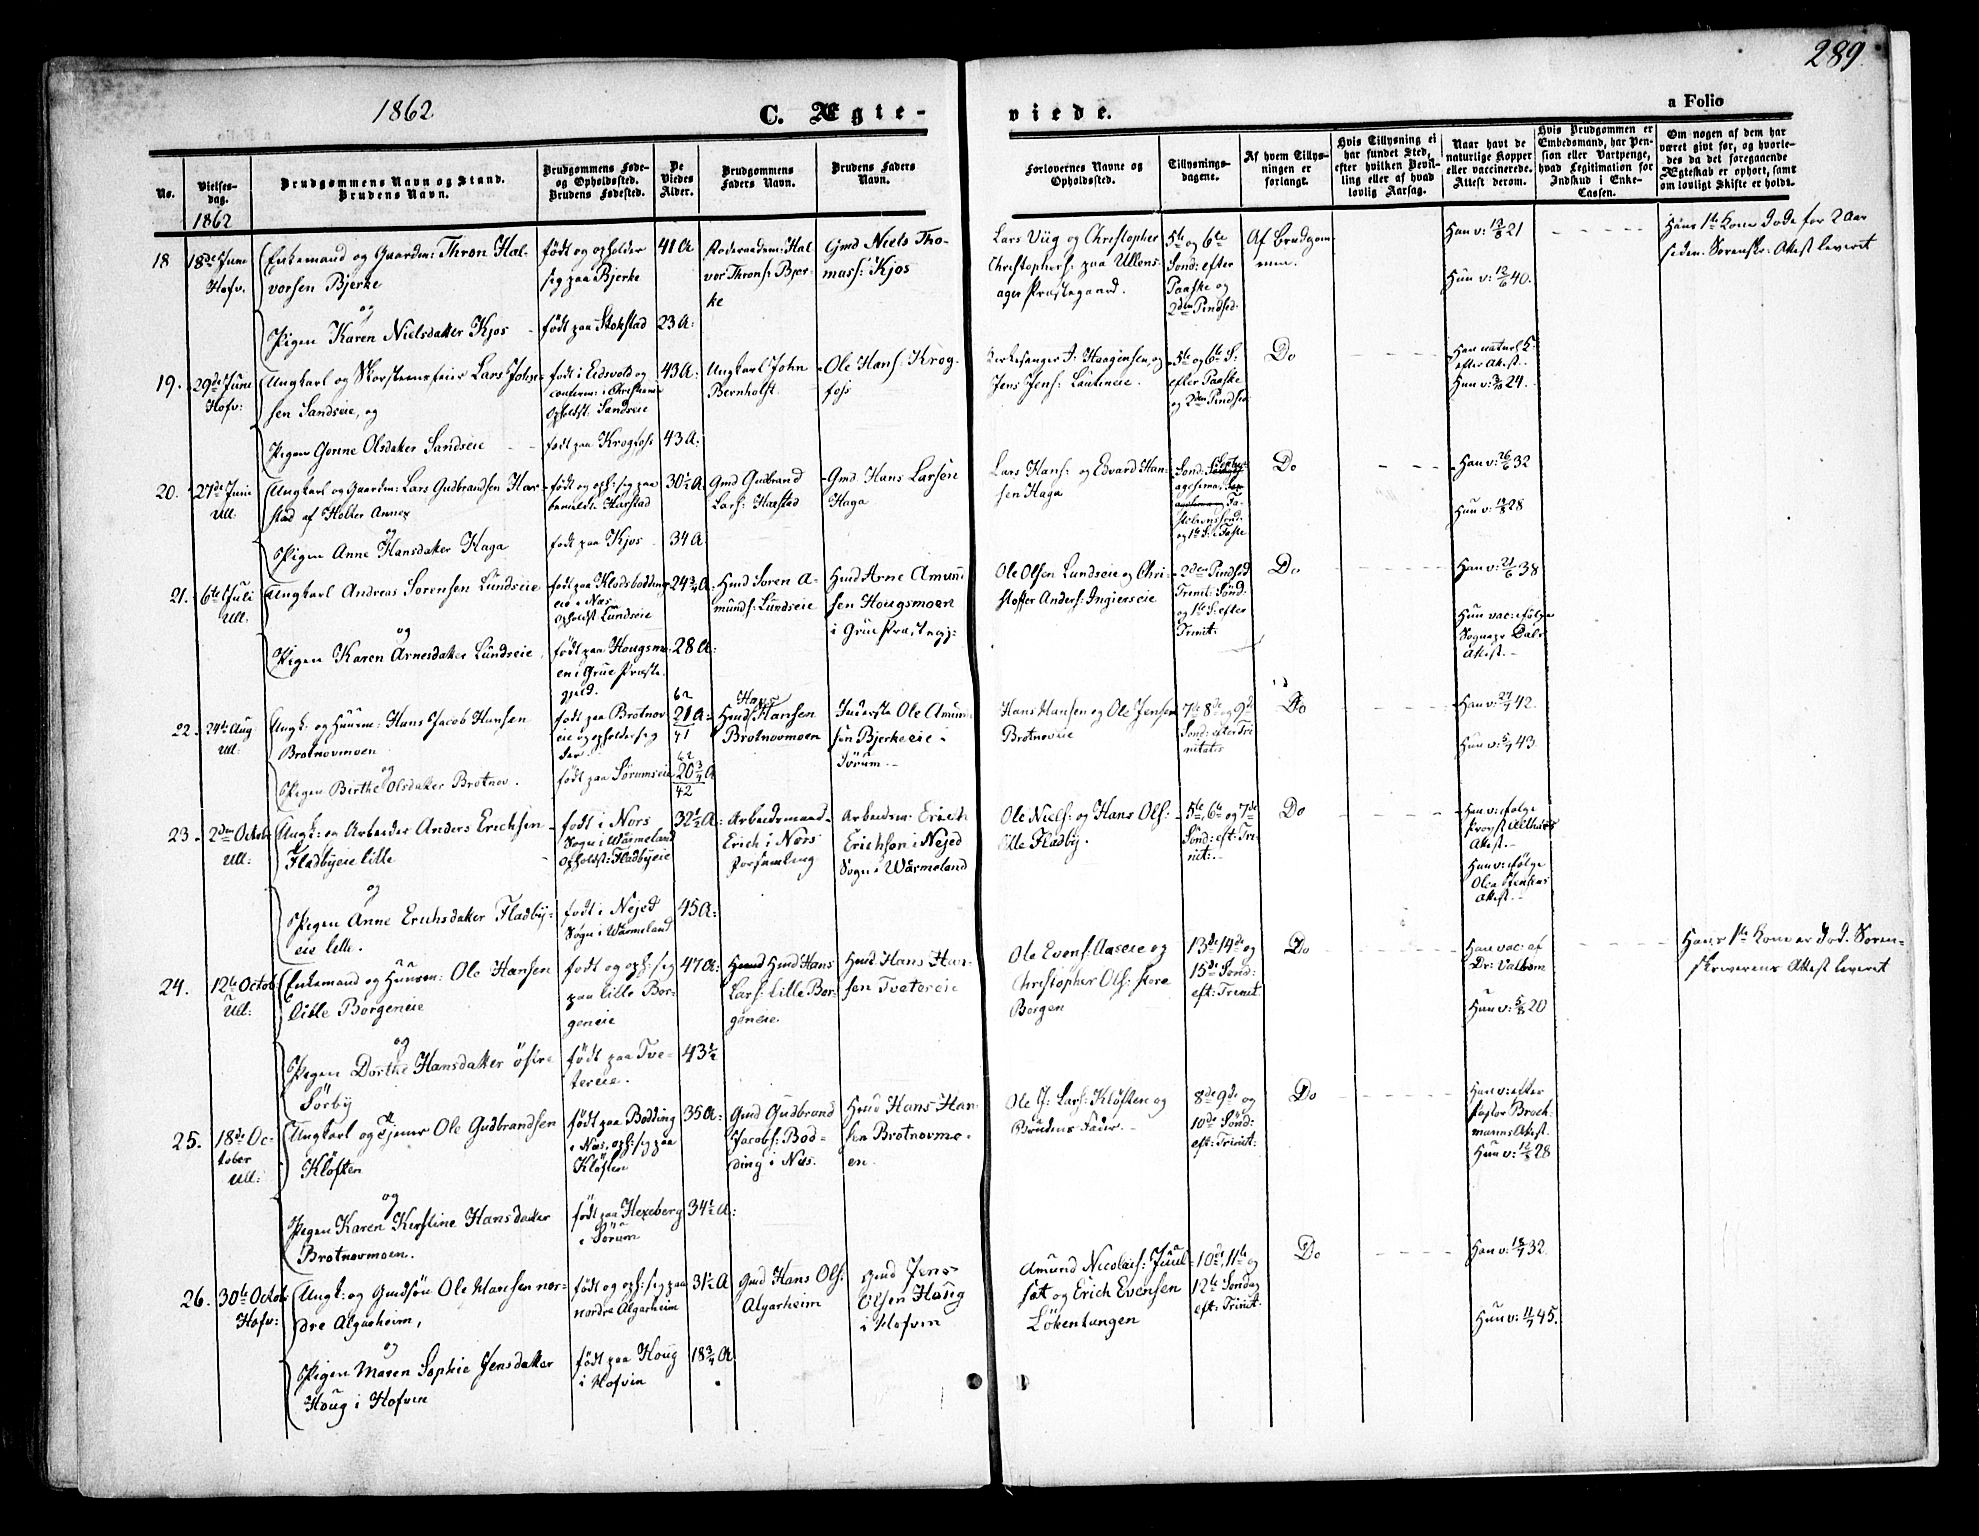 289
1862
C. Ægte-
viede.
a Folio
No.
Vielses-
dag.
Brudgommens Navn og Stand.
Brudens Navn.
Brudgommens Føde-
og Opholdssted.
Brudens Fødested.
De
Viedes
Alder.
Brudgommens
Faders Navn.
Brudens Faders
Navn.
Forlovernes Navne og
Opholdssted.
Tillysnings-
dagene.
Af hvem Tillys-
ningen er
forlangt.
Hvis Tillysning ei
har fundet Sted,
efter hvilken Bevil-
ling eller af hvad
lovlig Aarsag.
Naar havt de
naturlige Kopper
eller vaccinerede.
Attest derom.
Hvis Brudgommen er
Embedsmand, har Pen-
sion eller Vartpenge,
hvad Legitimation for
Indskud i Enke-
Cassen.
Om nogen af dem har
været givt før, og hvorle-
des da det foregaaende
Ægteskab er ophørt, samt
om lovligt Skifte er holdt.
1862
18
18de Juni
Hofv.
Enkemand og Gaardm: Thron Hal-
vorsen Bjerke
og
Pigen Karen Nielsdatter Kjos
født og opholder
sig paa Bjerke
født paa Stokstad
41 A
23 A:
Hal-
vor Throns: Bjer-
ke
Gmd Niels Tho-
mass: Kjos
Lars Viig og Christopher
Christophers: paa Ullens-
ager Præstegaard.
5te og 6te
Sønd: efter
Paaske og
2den Pindsed.
Af Brudgom-
men.
Han v: 13/8 21
Hun v: 12/6 40.
Hans 1te Kone døde for 2 Aar
siden. Sorenskr: Attest leveret
19.
29de Juni
Hofv:
Ungkarl og Skorsteensfeier Lars John-
sen Sandseie, og
Pigen Gonne Olsdatter Sandseie
født i Eidsvold og
confirm: i Christiania
Opholdst: Sandseie
født paa Krogfoss
43 A:
43 A:
Ungkarl John
Bernholst
Ole Hans: Krog-
foss
Kirkesanger J: Haagensen, og
Jens Jens: Lautneie.
5te og 6te S:
efter Paaske
og 2den Pindsed
Do
Han naturl: K
efter Attest.
Hun v: 3/10 24.
20.
27de Juni
Ull:
Ungkarl og Gaardm: Lars Gudbrandsen Har-
stad af Holter Annex
og
Pigen Anne Hansdatter Haga
født og oph: sig paa
bemeldte Harstad
født paa Kjos
30½ A:
34 A:
Gmd Gudbrand
Lars: Harstad
Gmd. Hans Larsen
Haga
Lars Hans: og Edvard Han-
sen Haga
Sønd:
Fa-
stelavnssønd:
og 1te S: i Faste
Do
Han v: 26/6 32
Hun v: 12/8 28
21.
6te Juli
Ull:
Ungkarl Andreas Sørensen Lundseie
og
Pigen Karen Arnesdatter Lundseie
født paa Klodsbødding-
eie i Næs.
Opholdst Lundseie
født paa Hougsmo-
en i Grue Præste-
gjeld.
24¾ A:
28 A:
Hmd Søren A-
munds: Lundseie
Hmd Arne Amund-
sen Hougsmoen
i Grue Præstegj:
Ole Olsen Lundseie og Chri-
stoffer Anders: Ingierseie
2den Pindsed
Trinit: Sønd:
og 1te S: efter
Trinit:
Do
Han v: 21/6 38
Hun vac: ifølge
Sognepr Dals
Attest.
22.
24de Aug
Ull.
Ungk: og Huusm: Hans Jacob Hansen
Brotnovmoen
og
Pigen Birthe Olsdatter Brotnov.
født paa Brotnov
eie og opholder sig
der
født paa Sørumseie
62
21 A:
41
62
20¾ A
42
Hans
Hmd: Hansen
Brotnovmoen
Inderste Ole Amund-
sen Bjerkeeie i
Sørum.
Hans Hansen og Ole Jensen
Brotnoveie
7de 8de og 9de
Sønd: efter Tri-
nitatis
Do
Han v: 27/7 42.
Hun v: 5/7 43.
23.
2den Octob:
Ull:
Ungk: og Arbeider Anders Erichsen
Fladbyeie lille
og
Pigen Anne Erichsdatter Fladby-
eie lille.
født i Nors
Sogn i Wärmeland
Opholdst: Fladbyeie
født i Nejed
Sogn i Wärmeland
32½ A:
45 A:
Arbeidsmand
Erich i Nors
Forsamling
Arbeidsm: Erich
Erichsen i Nejed
Sogn i Wärmeland
Ole Niels: og Hans Ols:
lille Fladby.
5te, 6te og 7de
Sønd: eft: Tri-
nit:
Do
Han v: ifølge
Provst
Attest.
Hun v: ifølge
Attest.
24.
12te Octob:
Ull:
Enkemand og Huusm: Ole Hansen
Lille Borgeneie
og
Pigen Dorthe Hansdatter østre
Sørby
født og oph: sig
paa Lille Bor-
geneie
født paa Tve-
tereie.
47 A:
43½
Hmd Hans
Lars: Lille Bor-
geneie.
Hmd Hans Han-
sen Tvetereie
Ole Evens: Aaseie og
Christopher Ols: store
Borgen
13de 14de og
15de Sønd:
eft: Trinit.
Do
Han vac: af
Dr: Valbom
Hun v: 5/8 20
Hans 1te Kone er død. Soren-
skriverens Attest leveret
25.
18de Oc-
tober
Ull:
Ungkarl og Tjener Ole Gudbrandsen
Kløften
og
Pigen Karen Kirstine Hansdatter
Brotnovmoen.
født paa Bødding
i Næs, oph: sig paa
Kløften
født paa Hexeberg
i Sørum
35 A:
34½ A:
Gmd Gudbrand
Jacobs: Bød-
ding i Næs.
Hmd Hans Han-
sen Brotnovmo-
en.
Ole J. Lars: Kløften og
Brudens Fader.
8de 9de og
10de Sønd:
eft: Trinit:
Do
Han v: efter
Pastor Broch-
manns Attest.
Hun v: 12/8 28
26.
30te Octob:
Hofv:
Ungk: og Gmdsøn Ole Hansen nor-
dre Algarheim,
og
Pigen Maren Sophie Jensdatter
Houg i Hofvin
født og oph: sig paa
nordre Algarheim
født paa Houg
i Hofvin
31½ A
18¾ A
Gmd Hans Ols:
Algarheim
Gmd Jens
Olsen Houg
i Hofvin
Amund Nicolais: Juul-
sæt og Erich Evensen
Løkentangen
10de, 11te og
12te Søndag
eft: Trinit.
Do
Han v: 18/7 32.
Hun v: 11/7 45.